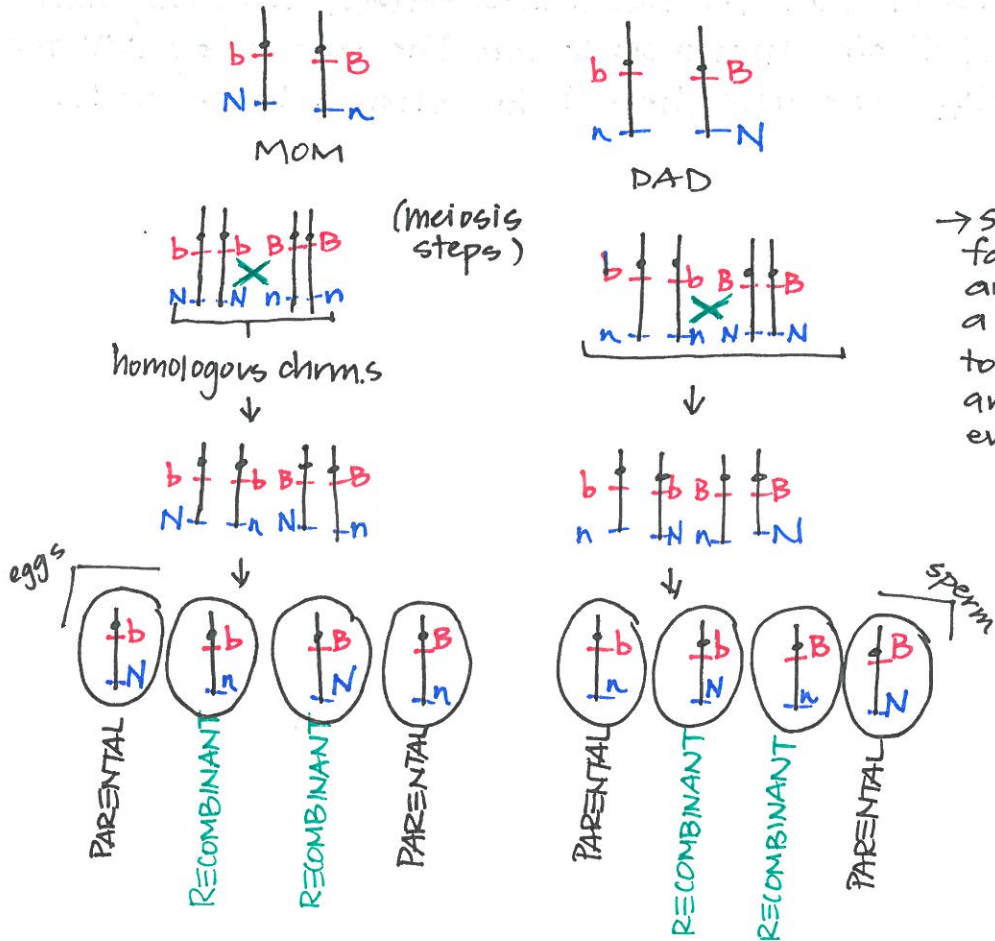 b B
N n
MOM
b B
n N
DAD
(meiosis
steps)
b b B B
N N n n
homologous chrm.s
b b B B
n n N N
a
to
b b B B
N n N n
b b B B
n N n N
eggs
b b B B
N n N n
PARENTAL RECOMBINANT RECOMBINANT PARENTAL
sperm
b b B B
n N n N
PARENTAL RECOMBINANT RECOMBINANT PARENTAL